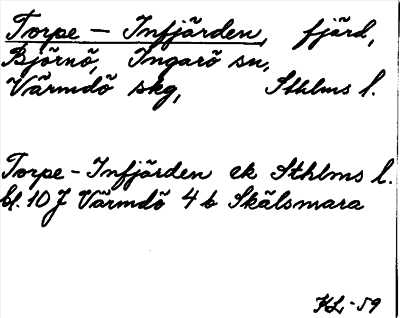 Torpe – Infjärden, fjärd,
Björnö, Ingarö sn,
Värmdö skg, Sthlms l.
Torpe-Infjärden ek Sthlms l.
bl. 10 J Värmdö 4 b Skälsmara
KL -59